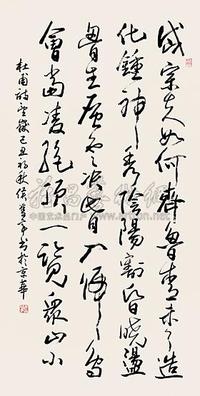 岱宗夫如何齊魯青未了造
化鍾神秀陰陽割昏曉盪
胸生層雲決眥入歸鳥
會當凌絕頂一覽眾山小
杜甫詩望嶽己丑初秋侯書於京華